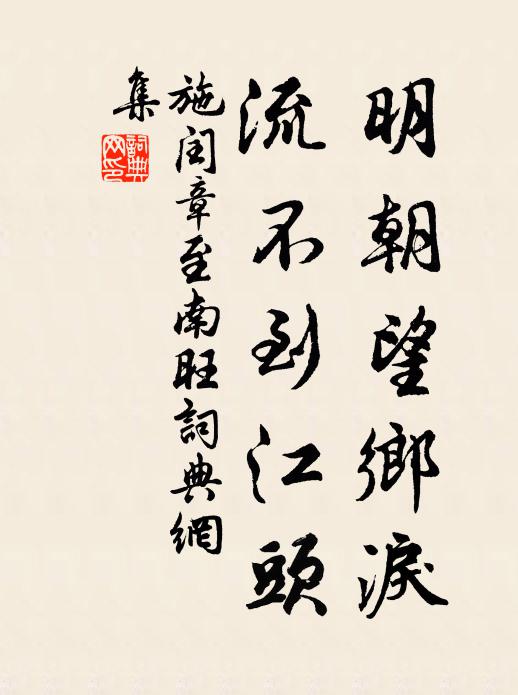 明朝望鄉淚
流不到江頭
施閏章至南旺詞典網
集
詞典網印